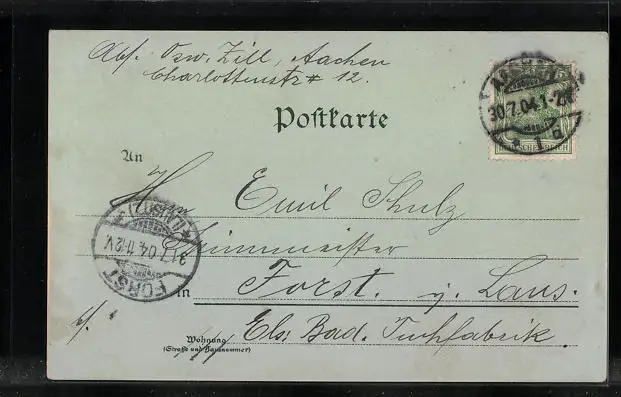 Abs. Osw. Zill, Aachen
Charlottenstr 12.
Postkarte
30.7.04.1-2N
* 1 d
DEUTSCHES REICH
An
Hrn Emil Schulz
31.7.04.11-12V.
FORST
(LAUSITZ)
in Forst. i. Laus.
b/. Els. Bad. Tuchfabrik.
Wohnung
(Straße und Hausnummer)